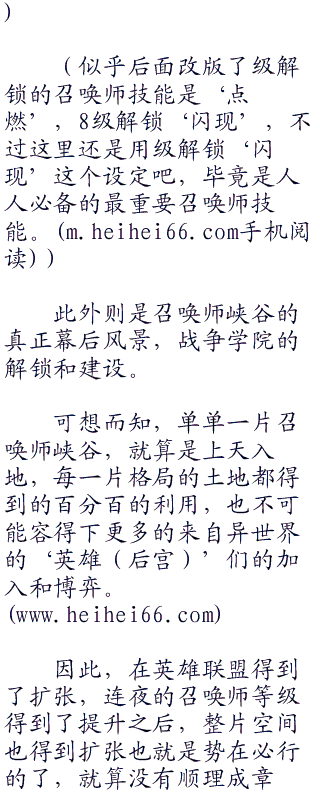 )
（似乎后面改版了级解
锁的召唤师技能是‘点
燃’，8级解锁‘闪现’，不
过这里还是用级解锁‘闪
现’这个设定吧，毕竟是人
人必备的最重要召唤师技
能。(m.heihei66.com手机阅
读)）
此外则是召唤师峡谷的
真正幕后风景，战争学院的
解锁和建设。
可想而知，单单一片召
唤师峡谷，就算是上天入
地，每一片格局的土地都得
到的百分百的利用，也不可
能容得下更多的来自异世界
的‘英雄（后宫）’们的加
入和博弈。
(www.heihei66.com)
因此，在英雄联盟得到
了扩张，连夜的召唤师等级
得到了提升之后，整片空间
也得到扩张也就是势在必行
的了，就算没有顺理成章